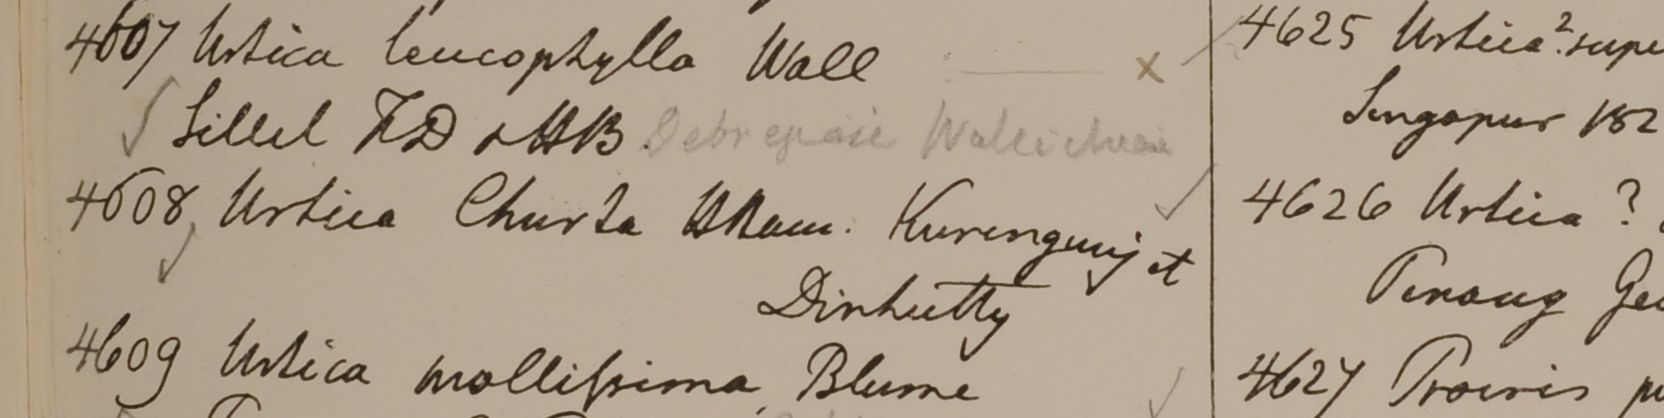 4607 Urtica leucophylla Wall x
Sillet FD & HB. Debregeasie Wallichiana
4608, Urtica Churta HHam. Kurengunj et
Dinhutty
4609 Urtica mollissima, Blume
4625 Urtica?
Singapur 182
4626 Urtica ?
Penang
4627 Procris